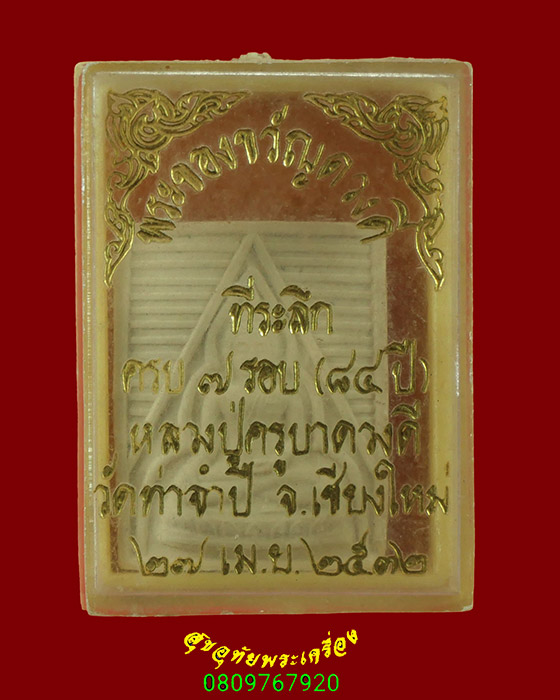 พระของขวัญดวงดี
ที่ระลึก
ครบ ๗ รอบ (๘๔ ปี)
หลวงปู่ครูบาดวงดี
วัดท่าจำปี จ.เชียงใหม่
๒๗ เม.ย. ๒๕๓๒
สุขอุทัยพระเครื่อง
0809767920